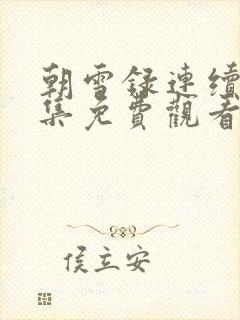 朝雪録連續
集免費觀看
侯立安